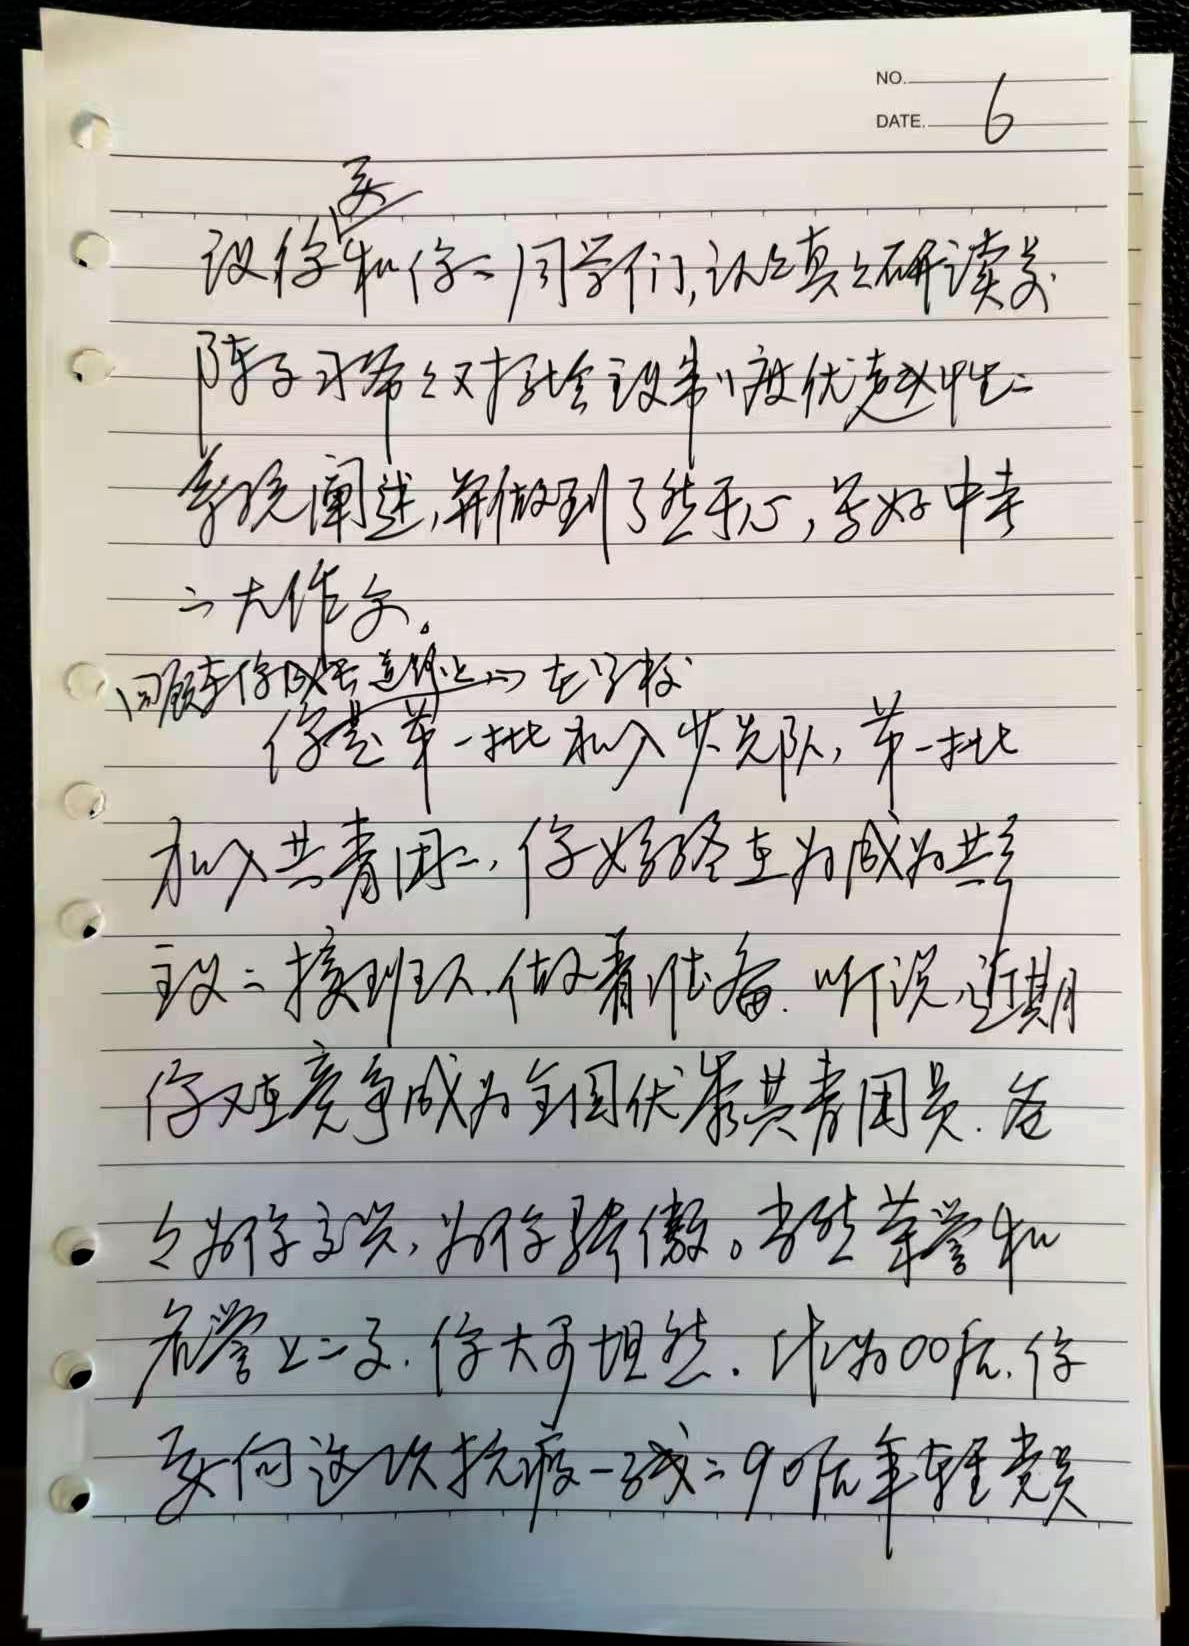 NO.
DATE. 6
要
议你和你的同学们,认认真真研读关
陈子习爷爷对社会主义制度优越性的
系统阐述,并做到了然于心,写好中考
的大作文。
回顾在你成长道路上的 在学校
你是第一批加入少先队,第一批
加入共青团的,你始终在为成为共产
主义的接班人做着准备.听说近期
你又在竞争成为全国优秀共青团员.爸
爸为你高兴,为你骄傲。当然荣誉和
名誉上的事.你大可坦然.作为00后.你
要向这次抗疫一线的90后年轻党员